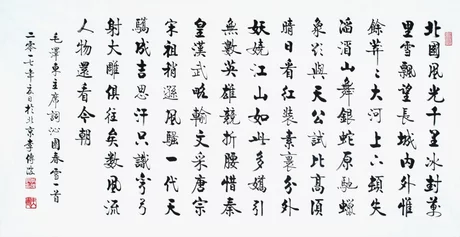 北國風光千里冰封萬
里雪飄望長城內外惟
餘莽々大河上下頓失
滔滔山舞銀蛇原馳蠟
象欲與天公試比高須
晴日看紅裝素裹分外
妖嬈江山如此多嬌引
無數英雄競折腰惜秦
皇漢武略輸文采唐宗
宋祖稍遜風騷一代天
驕成吉思汗只識彎弓
射大雕俱往矣數風流
人物還看今朝
毛澤東主席詞沁園春雪一首
二零一七年夏日於北京李傳波